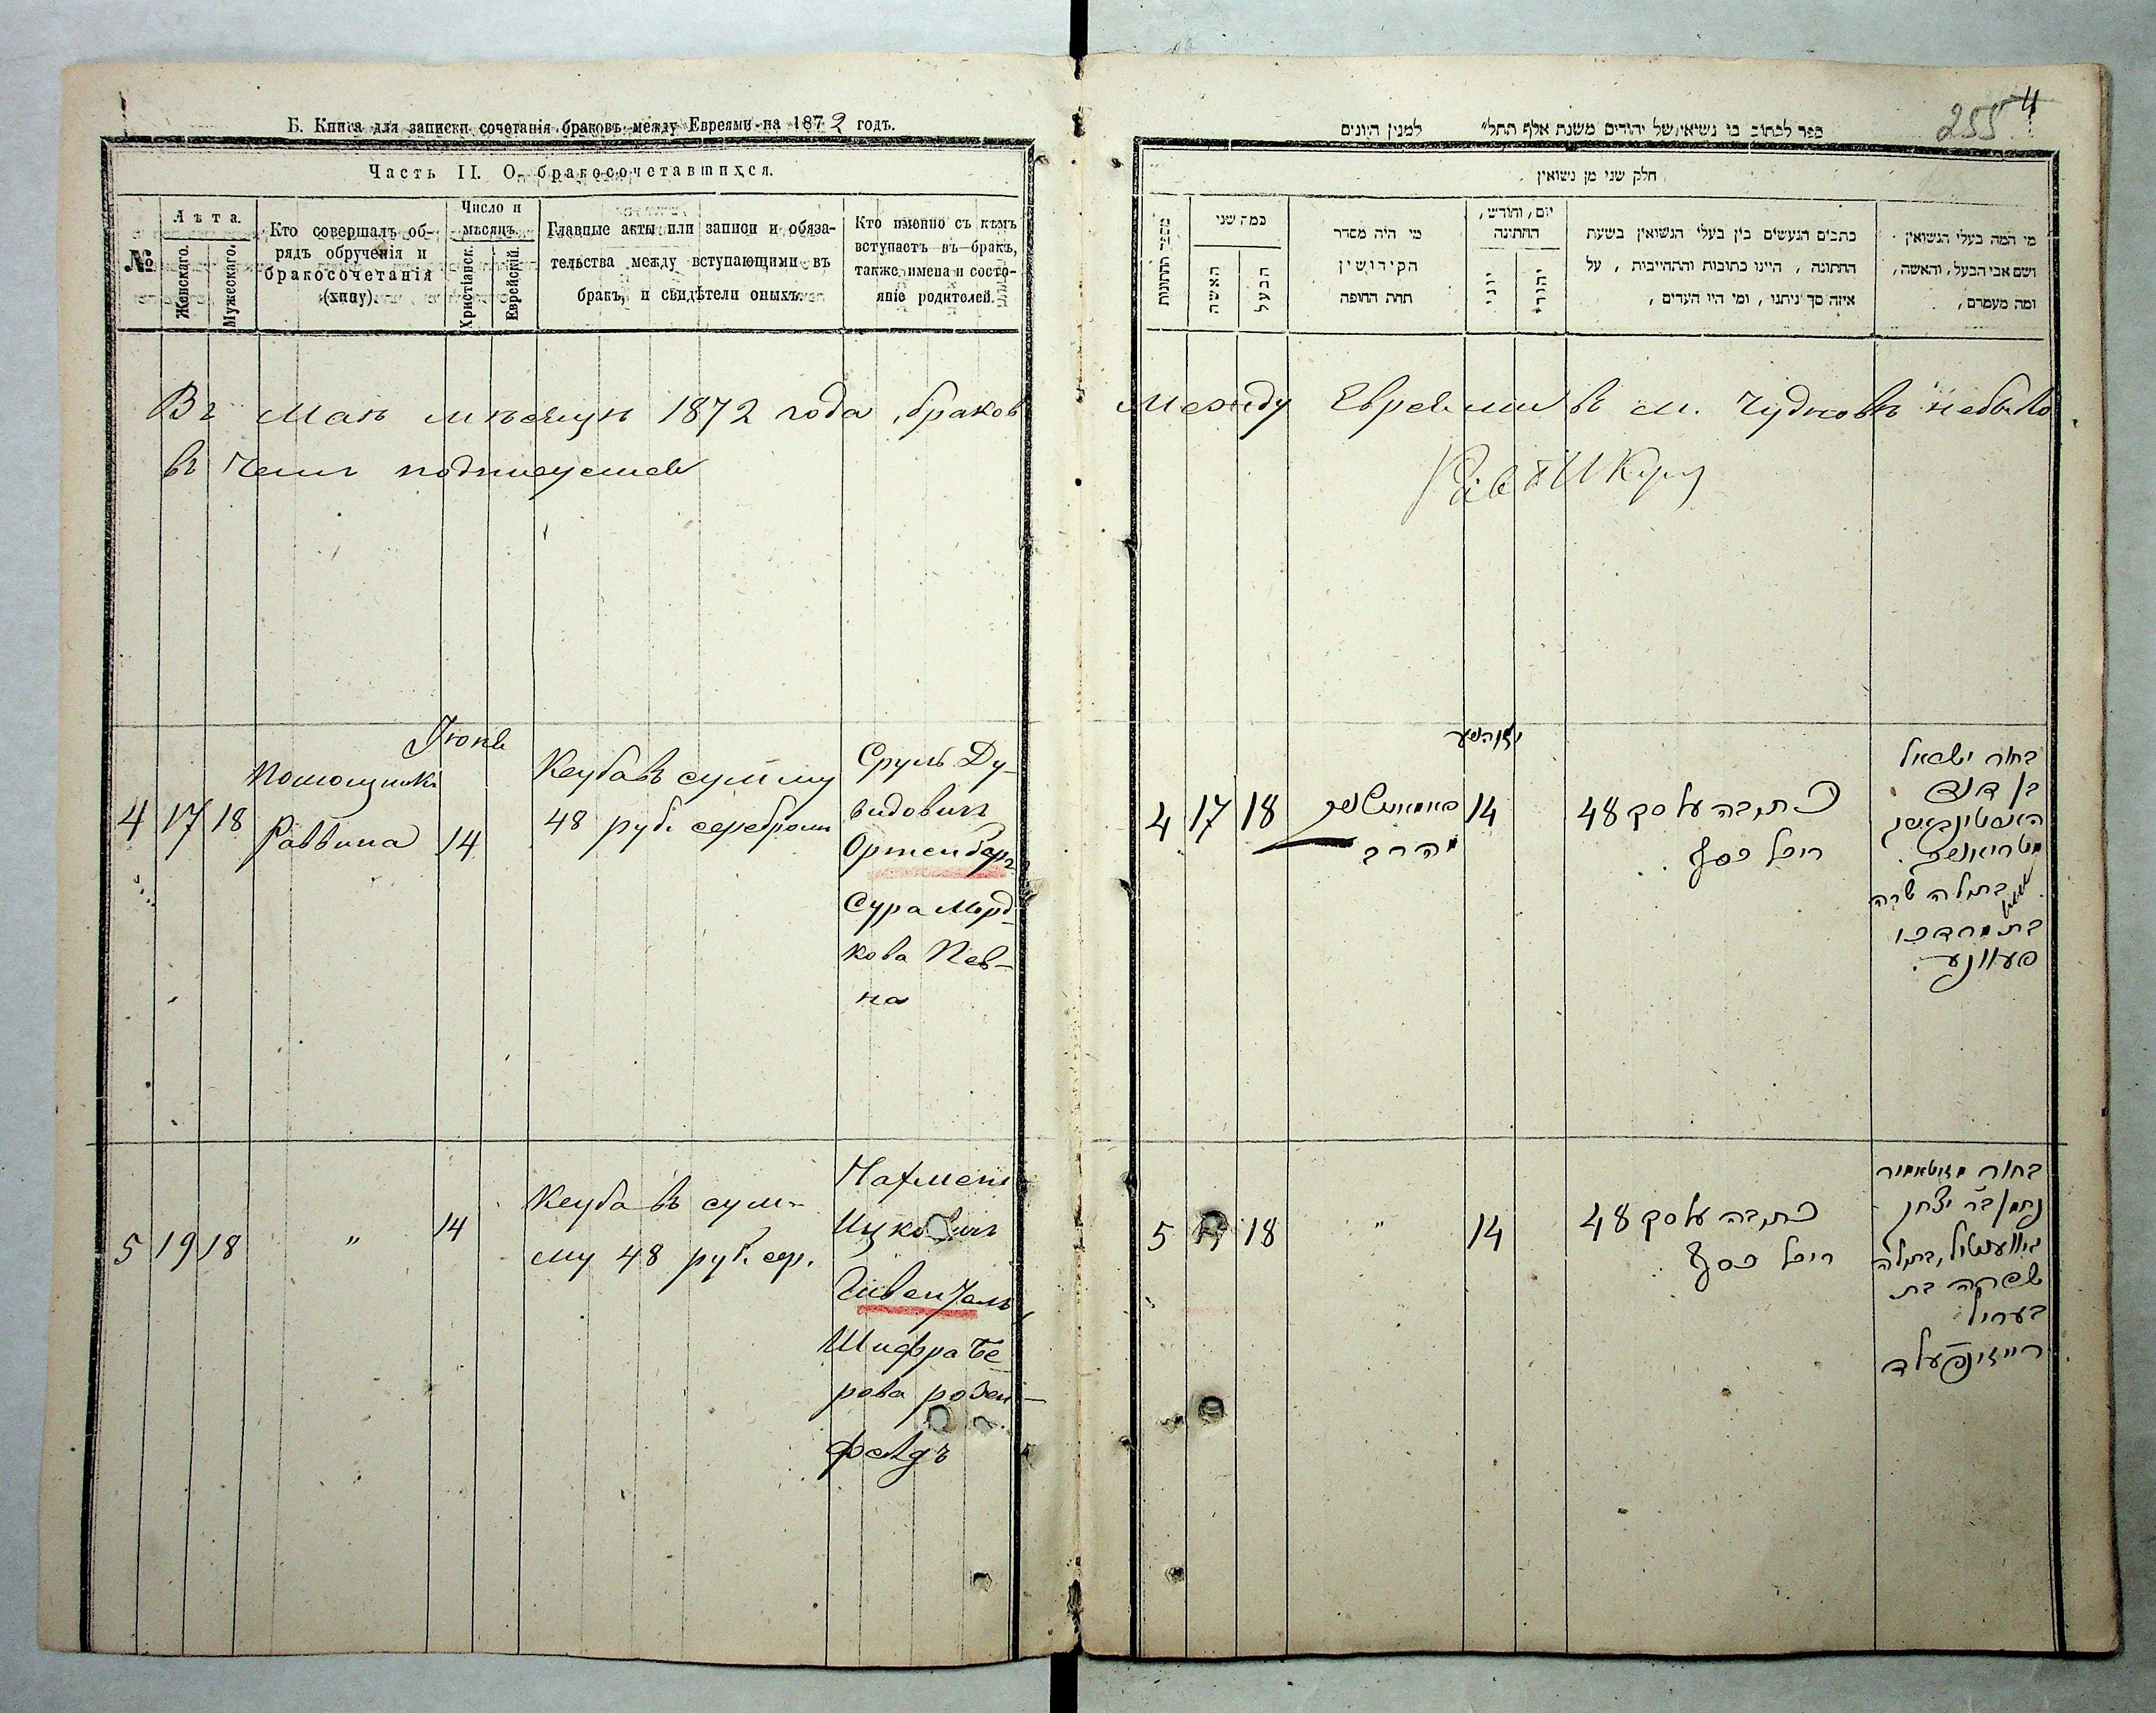 Б. Книга для записки сочетанія браковъ между Евреями на 1872 годъ.
Часть II. О бракосочетавшихся.
№
Лѣта.
Женскаго.
Мужескаго.
Кто совершалъ об-
рядъ обрученія и
бракосочетанія
(хипу).
Число и
мѣсяцъ.
Христіанск.
Еврейскій.
Главные акты или записи и обяза-
тельства между вступающими въ
бракъ, и свидѣтели оныхъ.
Кто именно съ кѣмъ
вступаетъ въ бракъ,
также имена и состо-
яніе родителей.
Въ Маѣ мѣсяцѣ 1872 года браков
въ чемъ подписуемся
4
17
18
Помощникъ
Раввина
Іюнь
14
Кеуба въ сумму
48 руб. серебром
Сруль Ду-
видовичъ
Ортенбергъ
Сура Морд-
кова Пев-
на
5
19
18
"
14
Кеуба въ сум-
му 48 руб. сер.
Нахмень
Ицковичъ
Гивенталь
Шифра Бе-
рова розен-
фелдъ
255
4
ספר לכתוב בו נשיאי של יהודים משנת אלף תתל״ למנין היונים
חלק שני מן נשואין
מספר החתונות
כמה שני
האשה
הבעל
מי היה מסדר
הקידושין
תחת החופה
יום, וחודש,
החתונה
יוני
יהודי
כתבים הנעשים בין בעלי הנשואין בשעת
החתונה, היינו כתובות והתחייבות, על
איזה סך ניתנו, ומי היו העדים,
מי המה בעלי הנשואין
ושם אבי הבעל, והאשה,
ומה מעמדם,
между Евреями въ м. Чудновѣ небыло
4
17
18
מהרב
14
כתובה על סך 48
רובל כסף
בחור ישראל
בן דוד
בתולה שרה
בת מרדכי
פעוונע
5
18
"
14
כתובה על סך 48
רובל כסף
בחור מזיטאמיר
נחמן בר יצחק
גיווענטיל, בתולה
שפרה בת
בעריל
רייזינפעלד